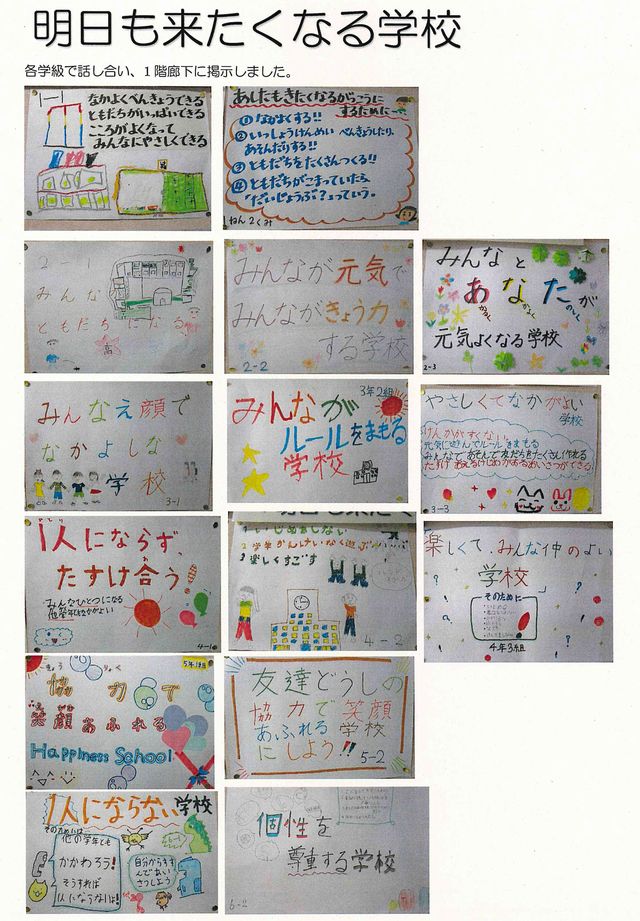 明日も来たくなる学校
各学級で話し合い、1階廊下に掲示しました。
1-1
なかよくべんきょうできる
ともだちがいっぱいできる
こころがよくなって
みんなにやさしくできる
あしたもきたくなるがっこうに
するために
①なかよくする!!
②いっしょうけんめい べんきょうしたり、
あそんだりする!!
③ともだちをたくさんつくる!!
④ともだちがこまっていたら、
「だいじょうぶ?」っていう。
1ねん2くみ
2-1
みんな
ともだちになる
みんなが元気で
みんながきょう力
する学校
2-2
みんなと
あなたが
元気よくなる学校
2-3
みんなえ顔で
なかよしな
学校
3-1
3年2組
みんなが
ルールをまもる
学校
やさしくてなかがよい
学校
けんかがすくない
元気に遊んでルールをまもる
みんなであそんで友だちをたくさん作れる
3-3
1人にならず、
たすけ合う!
みんなひとつになる
4-1
1 いじめをしない
3 楽しくすごす
4-2
楽しくて、みんな仲のよい
学校
そのために
4年3組
5年1組
協力で
笑顔あふれる
Happiness School
友達どうしの
協力で笑顔
あふれる学校
にしよう!!
5-2
1人にならない学校
そのためには
他の学年とも
かかわろう!
そうすれば
1人にならないよ!
自分からすす
んであい
さつしよう
個性を
尊重する学校
6-2